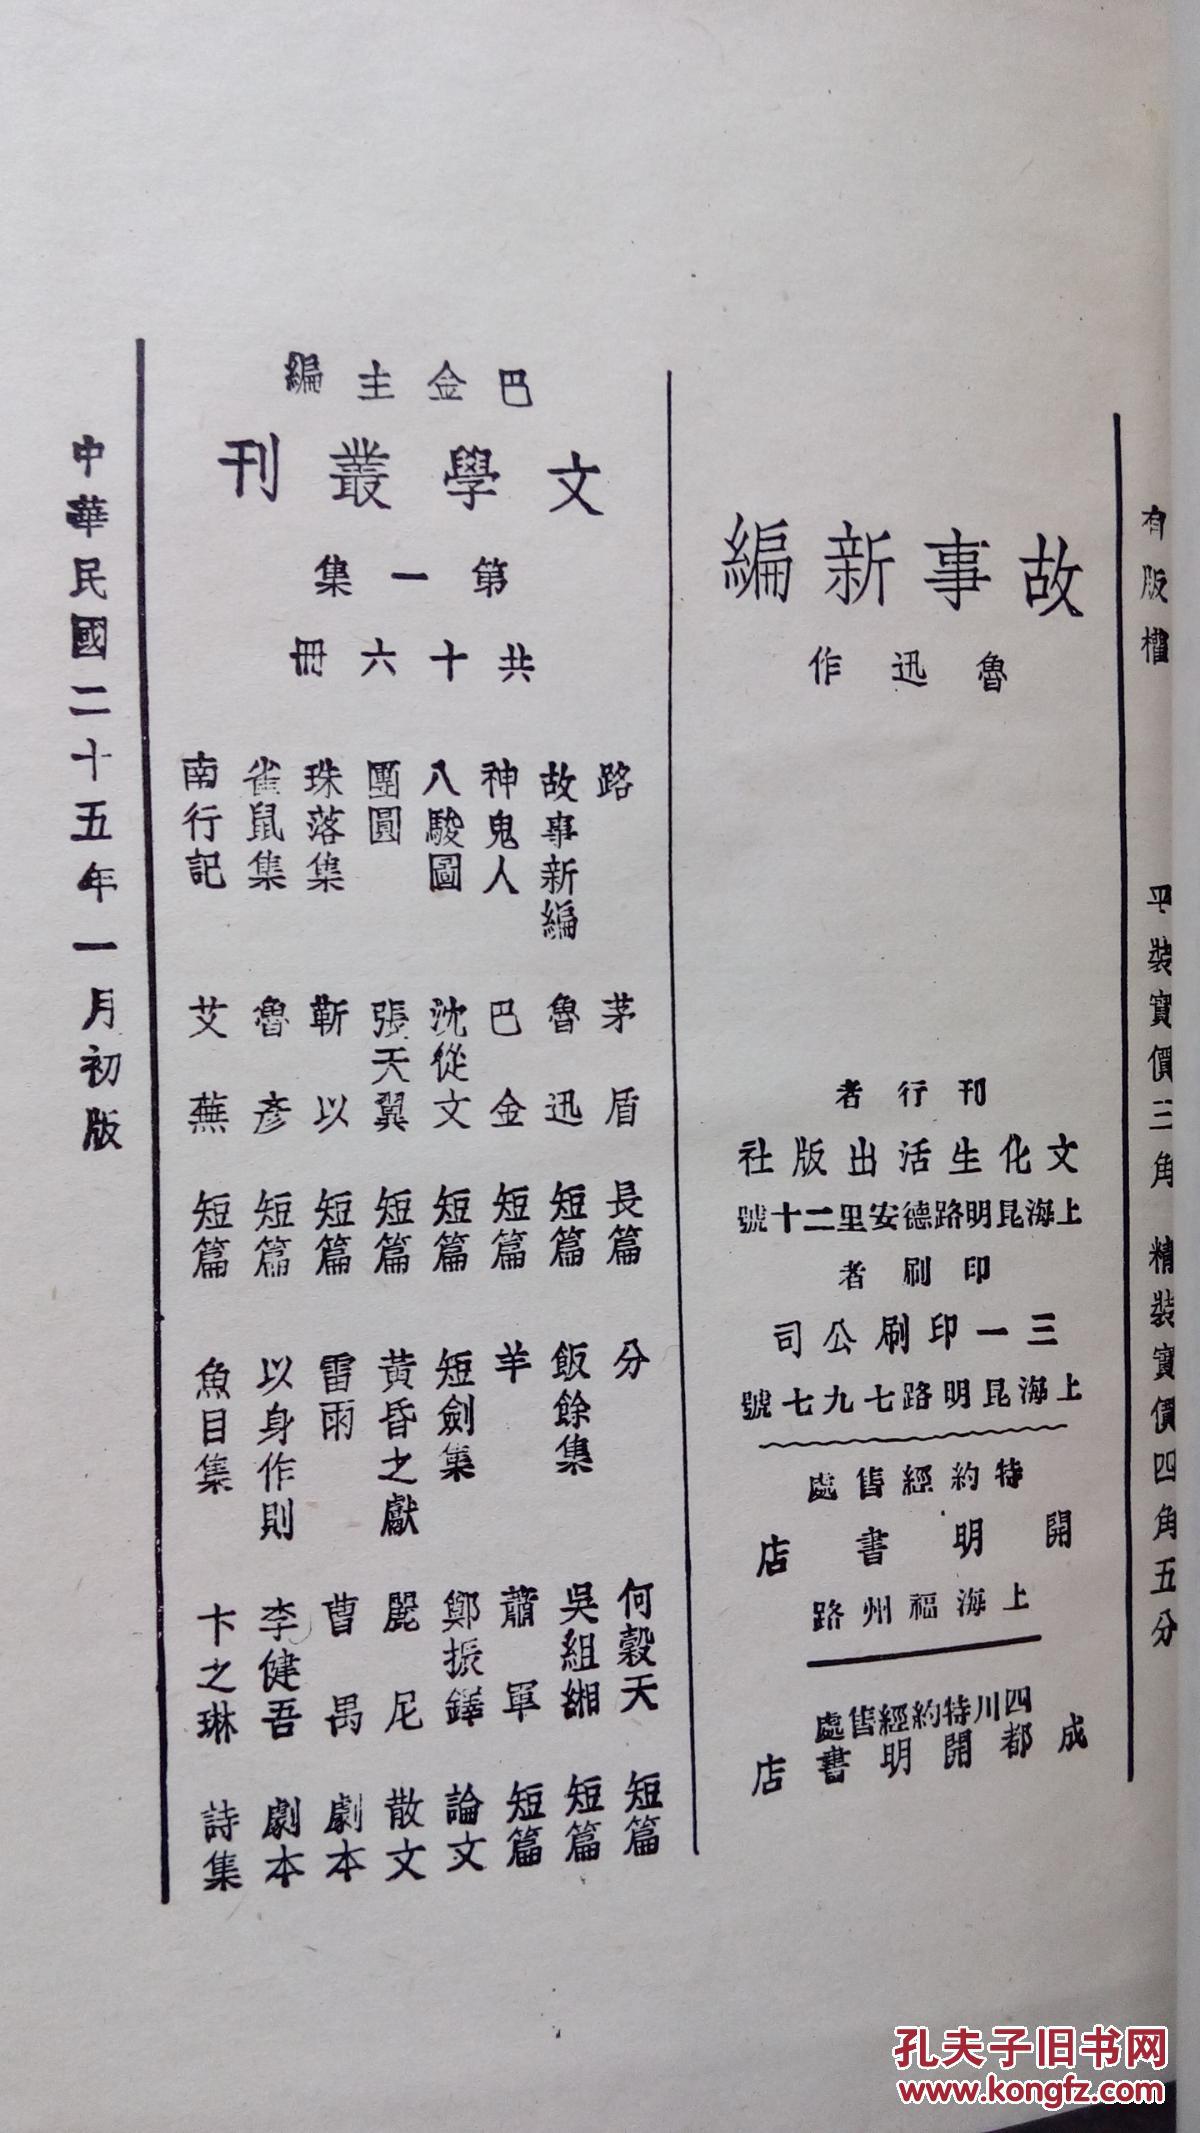 有版權
平裝實價三角　精裝實價四角五分
故事新編
魯迅作
刊行者
文化生活出版社
上海昆明路德安里二十號
印刷者
三一印刷公司
上海昆明路七九七號
特約經售處
開明書店
上海福州路
四川特約經售處
成都開明書店
巴金主編
文學叢刊
第一集
共十六冊
路　茅盾　長篇
故事新編　魯迅　短篇
神鬼人　巴金　短篇
八駿圖　沈從文　短篇
團圓　張天翼　短篇
珠落集　靳以　短篇
雀鼠集　魯彥　短篇
南行記　艾蕪　短篇
分　何穀天　短篇
飯餘集　吳組緗　短篇
羊　蕭軍　短篇
短劍集　鄭振鐸　論文
黃昏之獻　麗尼　散文
雷雨　曹禺　劇本
以身作則　李健吾　劇本
魚目集　卞之琳　詩集
中華民國二十五年一月初版
孔夫子旧书网
www.kongfz.com